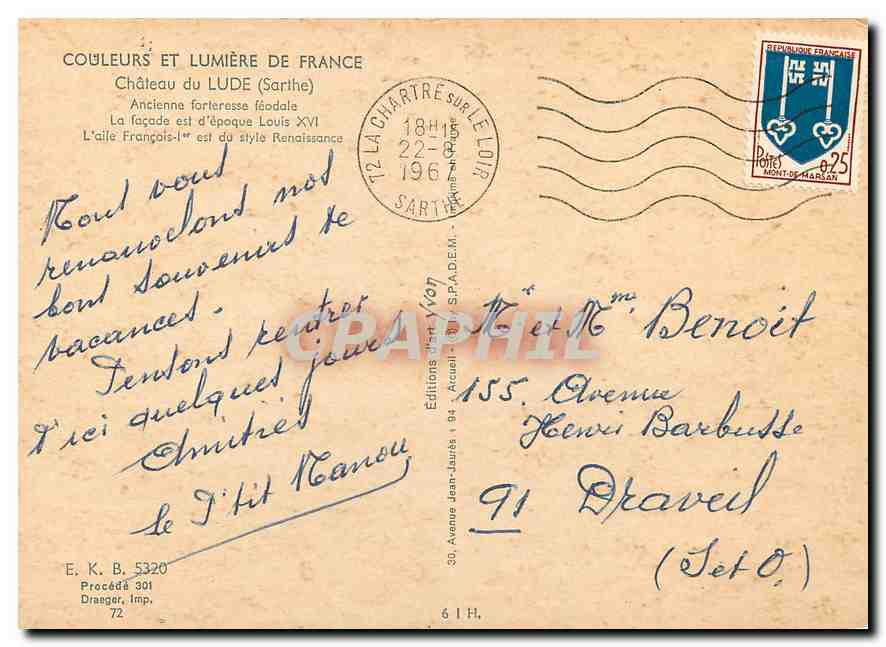 COULEURS ET LUMIÈRE DE FRANCE
Château du LUDE (Sarthe)
Ancienne forteresse féodale
La façade est d'époque Louis XVI
L'aile François-Ier est du style Renaissance
72 LA CHARTRE SUR LE LOIR
18H15
22-8
196
SARTHE
REPUBLIQUE FRANÇAISE
POSTES
0.25
MONT-DE-MARSAN
Nous vous
renouvelons nos
bons souvenirs de
vacances.
Pensons rentrer
d'ici quelques jours
Amitiés
le P'tit Manou
Mr et Mme Benoit
155. Avenue
Henri Barbusse
91 Draveil
(S et O.)
Editions d'art Yvon
30, Avenue Jean-Jaurès, 94 Arcueil
S.P.A.D.E.M.
CPAPHIL
E. K. B. 5320
Procédé 301
Draeger, Imp.
72
6 I H.